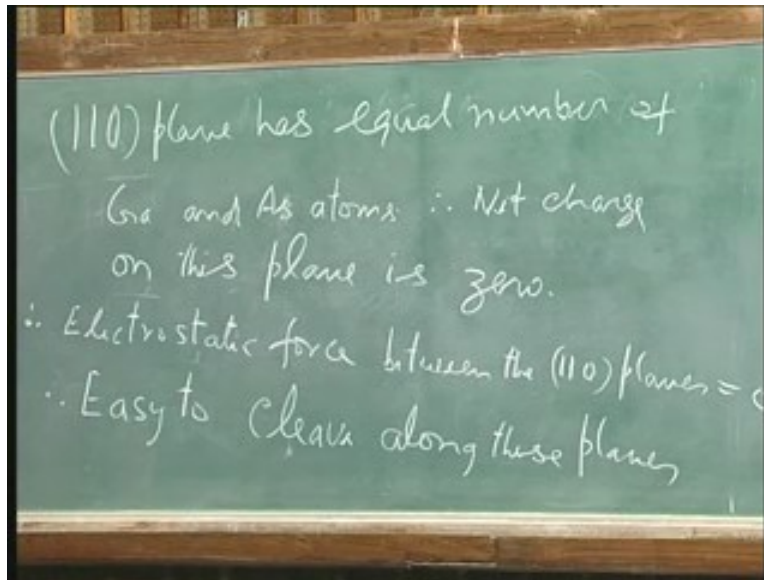 (110) plane has equal number of
Ga and As atoms ∴ Net charge
on this plane is zero.
∴ Electrostatic force between the (110) planes =
∴ Easy to cleave along these planes